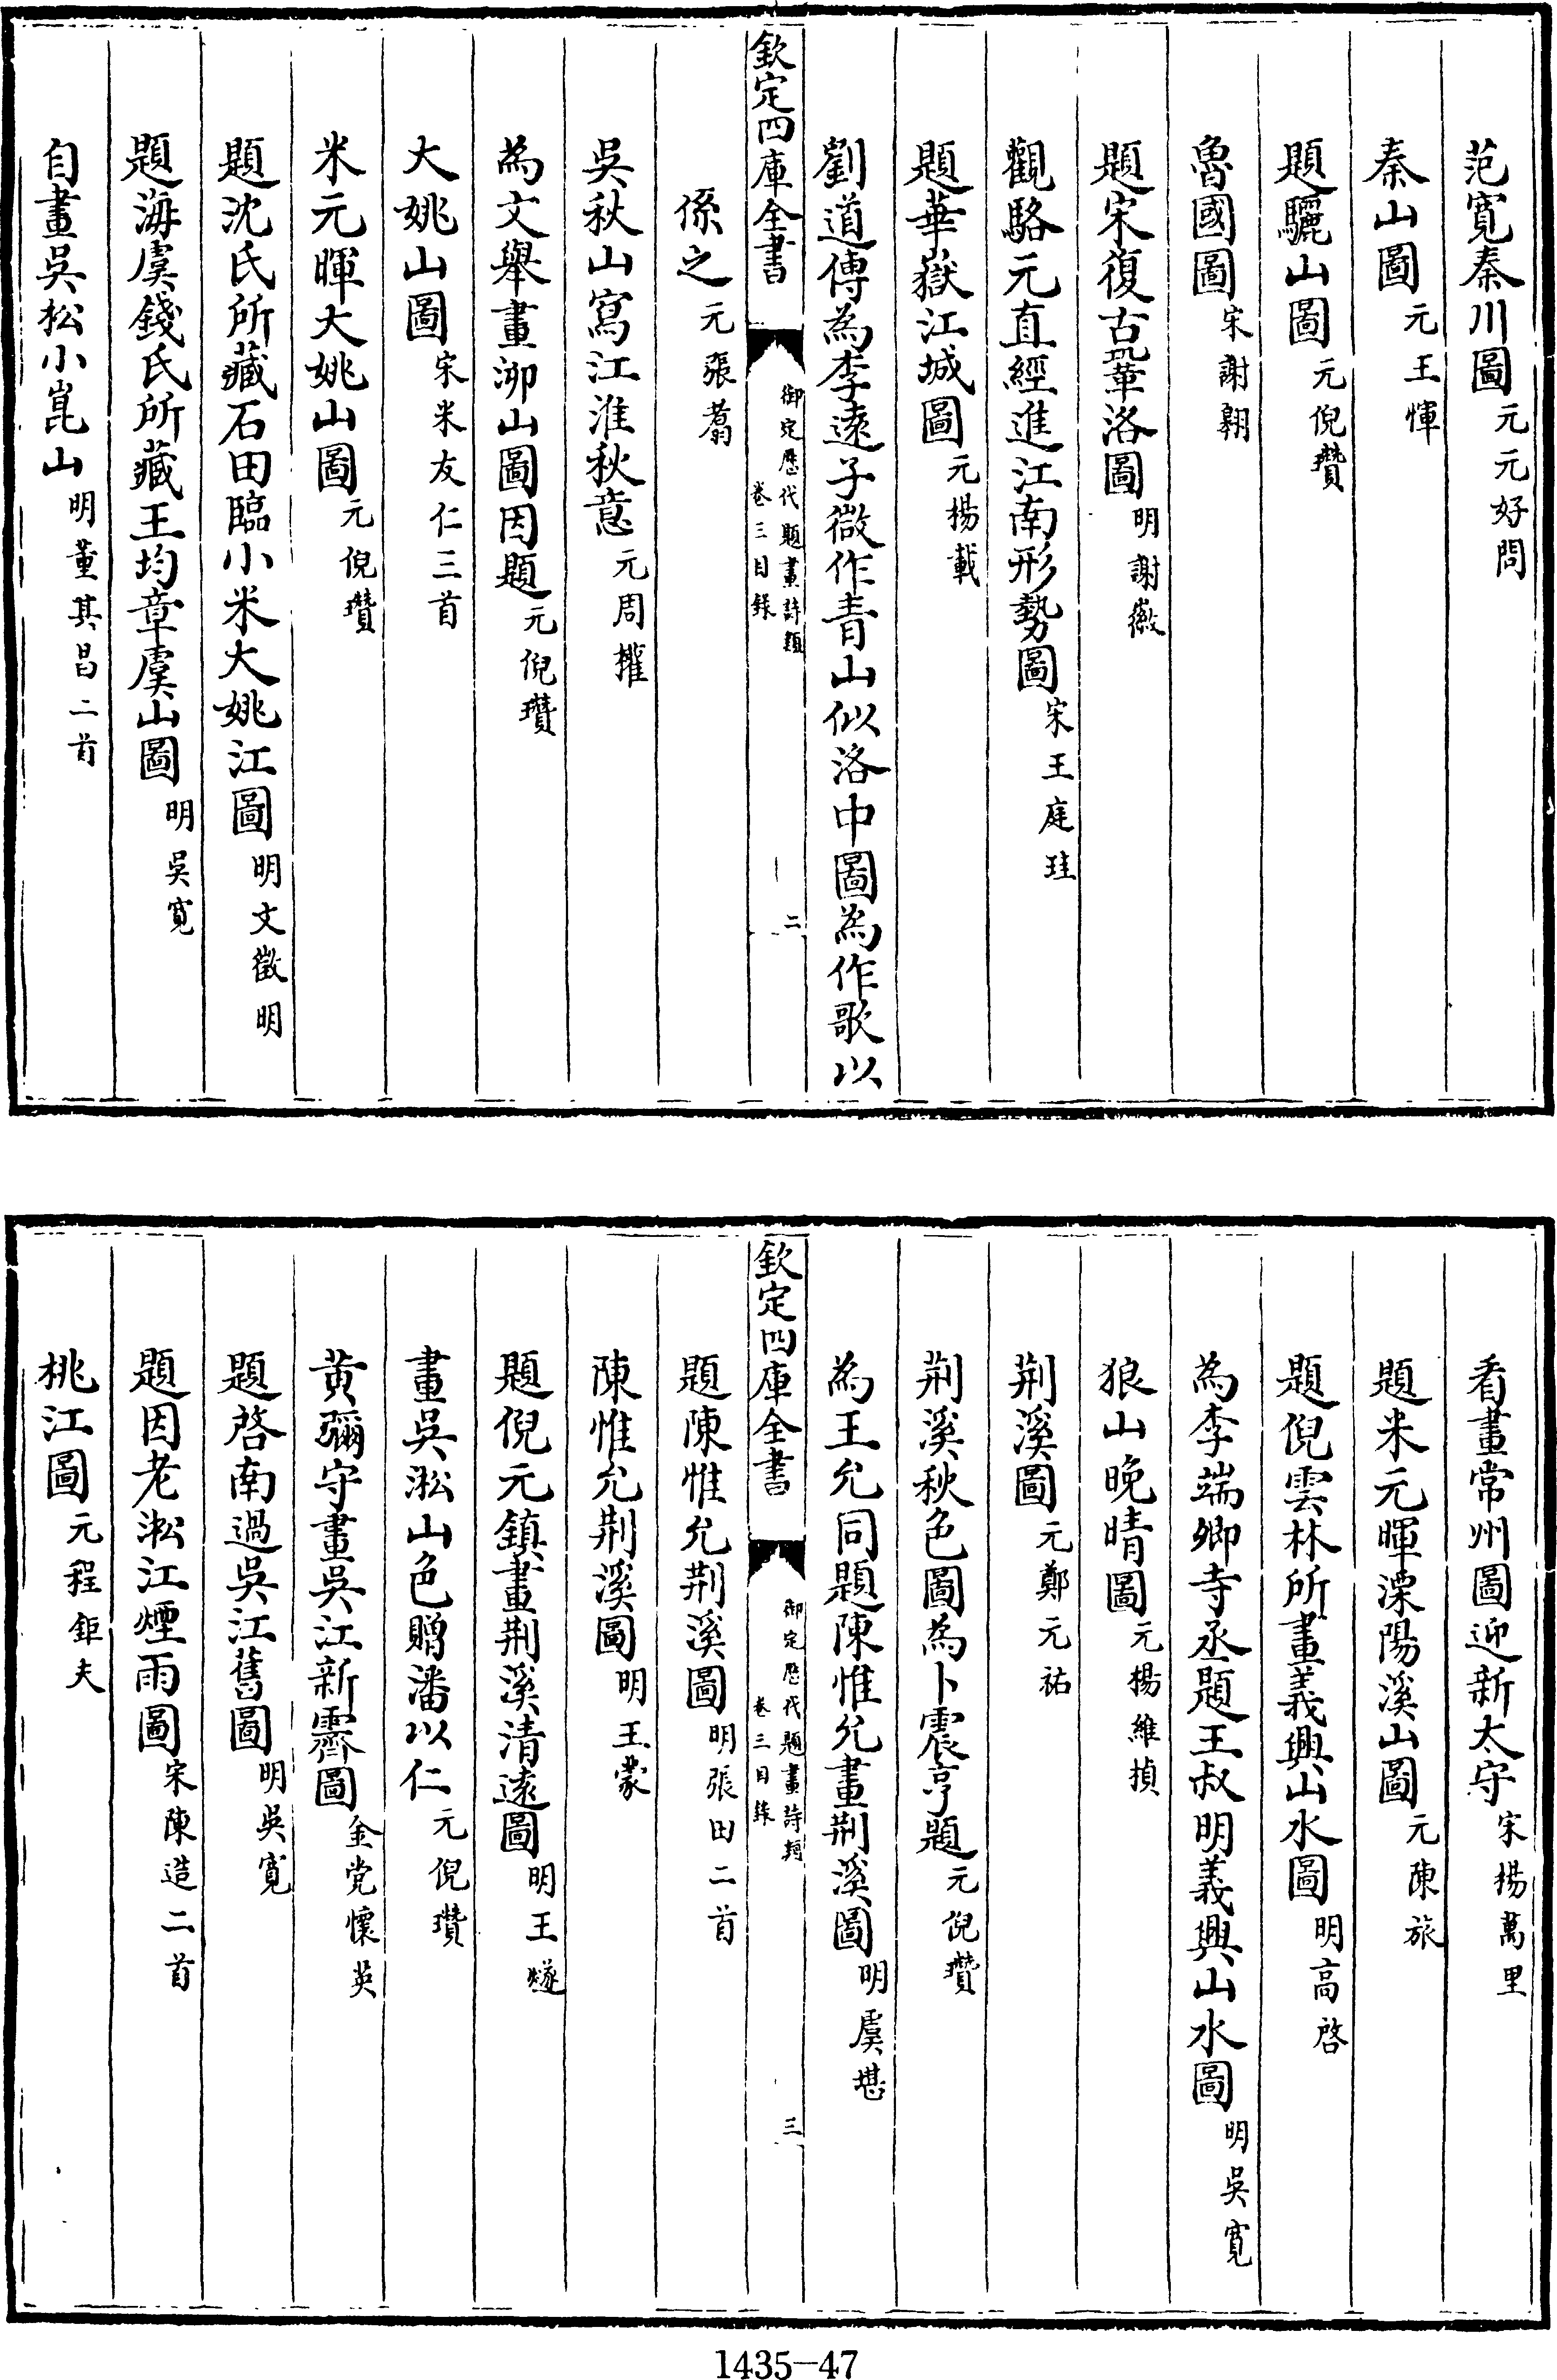 范寬秦川圖元元好問
秦山圖元王惲
題驪山圖元倪瓚
魯國圖宋謝翱
題宋復古鞏洛圖明謝徽
觀駱元直經進江南形勢圖宋王庭珪
題華嶽江城圖元楊載
劉道傅為李遠子微作青山似洛中圖為作歌以
欽定四庫全書
御定歷代題畫詩類
卷三目錄
二
係之元張翥
吳秋山寫江淮秋意元周權
為文舉畫泖山圖因題元倪瓚
大姚山圖宋米友仁三首
米元暉大姚山圖元倪瓚
題沈氏所藏石田臨小米大姚江圖明文徵明
題海虞錢氏所藏王均章虞山圖明吳寬
自畫吳松小崑山明董其昌二首
看畫常州圖迎新太守宋楊萬里
題米元暉溧陽溪山圖元陳旅
題倪雲林所畫義興山水圖明高啓
為李端卿寺丞題王叔明義興山水圖明吳寬
狼山晚晴圖元楊維楨
荆溪圖元鄭元祐
荆溪秋色圖為卜震亨題元倪瓚
為王允同題陳惟允畫荆溪圖明虞堪
欽定四庫全書
御定歷代題畫詩類
卷三目錄
三
題陳惟允荆溪圖明張田二首
陳惟允荆溪圖明王蒙
題倪元鎮畫荆溪清遠圖明王燧
畫吳淞山色贈潘以仁元倪瓚
黄彌守畫吳江新霽圖金党懷英
題啓南過吳江舊圖明吳寬
題因老淞江煙雨圖宋陳造二首
桃江圖元程鉅夫
1435—47